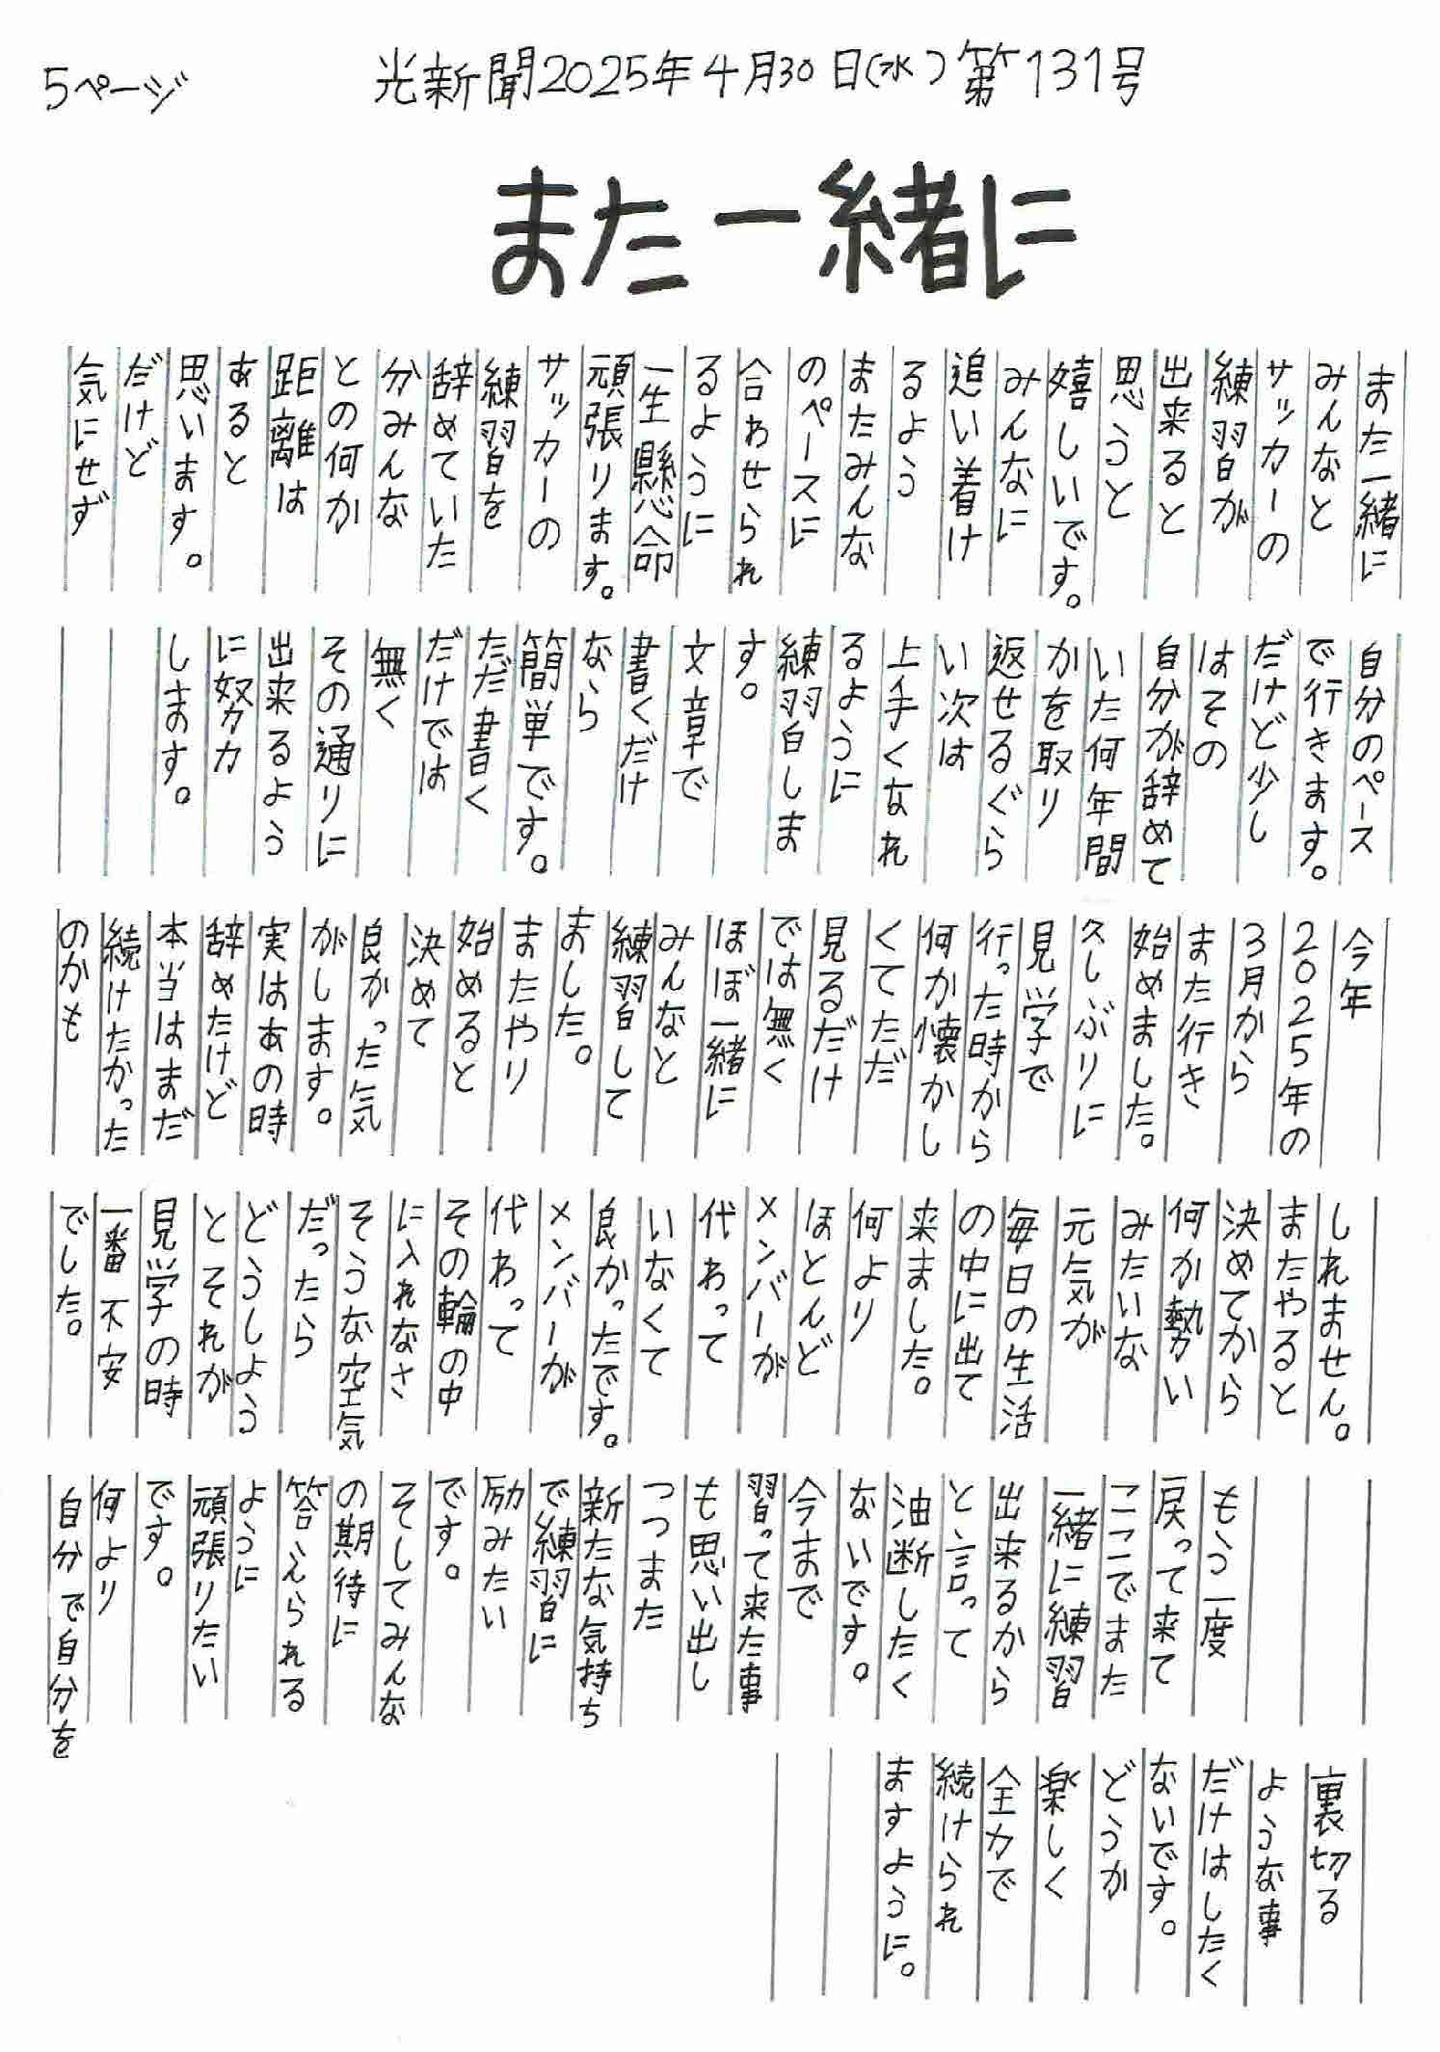 5ページ
光新聞2025年4月30日(水)第131号
また一緒に
また一緒に
みんなと
サッカーの
練習が
出来ると
思うと
嬉しいです。
みんなに
追い着け
るよう
またみんな
のペースに
合わせられ
るように
一生懸命
頑張ります。
サッカーの
練習を
辞めていた
分みんな
との何か
距離は
あると
思います。
だけど
気にせず
自分のペース
で行きます。
だけど少し
はその
自分が辞めて
いた何年間
かを取り
返せるぐら
い次は
上手くなれ
るように
練習しま
す。
文章で
書くだけ
なら
簡単です。
ただ書く
だけでは
無く
その通りに
出来るよう
に努力
します。
今年
2025年の
3月から
また行き
始めました。
久しぶりに
見学で
行った時から
何か懐かし
くてただ
見るだけ
では無く
ほぼ一緒に
みんなと
練習して
ました。
またやり
始めると
決めて
良かった気
がします。
実はあの時
辞めたけど
本当はまだ
続けたかった
のかも
しれません。
またやると
決めてから
何か勢い
みたいな
元気が
毎日の生活
の中に出て
来ました。
何より
ほとんど
メンバーが
代わって
いなくて
良かったです。
メンバーが
代わって
その輪の中
に入れなさ
そうな空気
だったら
どうしよう
とそれが
見学の時
一番不安
でした。
もう一度
戻って来て
ここでまた
一緒に練習
出来るから
と言って
油断したく
ないです。
今まで
習って来た事
も思い出し
つつまた
新たな気持ち
で練習に
励みたい
です。
そしてみんな
の期待に
答えられる
ように
頑張りたい
です。
何より
自分で自分を
裏切る
ような事
だけはしたく
ないです。
どうか
楽しく
全力で
続けられ
ますように。